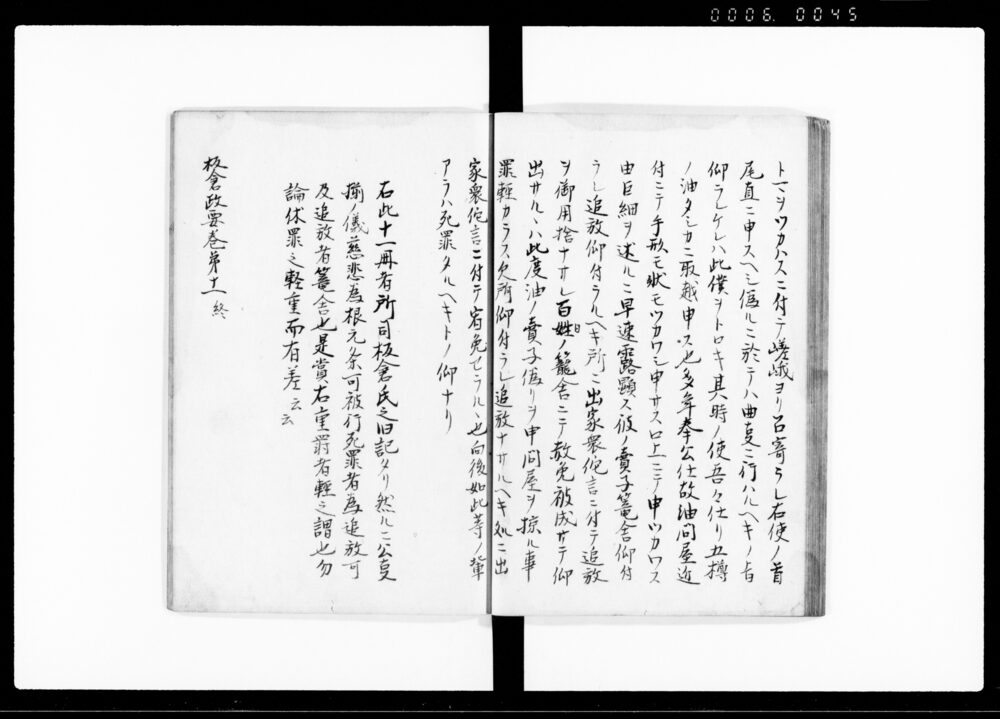 0006. 0045
トマヲツカハスニ付テ嵯峨ヨリ召寄ラレ右使ノ首
尾直ニ申スヘシ偽ルニ於テハ曲事ニ行ハルヘキノ旨
仰ラレケレハ此僕ヲトロキ其時ノ使吾々仕リ五樽
ノ油タシカニ取越申ス也多年奉公仕故油問屋近
付ニテ手形モ状モツカワシ申サス口上ニテ申ツカワス
由巨細ヲ述ルニ早速露顕ス彼ノ賣子篭舎仰付
ラレ追放仰付ラルヘキ所ニ出家衆侘言ニ付テ追放
ヲ御用捨ナサレ百姓ノ籠舎ニテ赦免被成サテ仰
出サルヽハ此度油ノ賣子偽リヲ申問屋ヲ掠ル事
罪軽カラス欠所仰付ラレ追放ナサルヘキ処ニ出
家衆侘言ニ付テ宥免セラルヽ也向後如此等ノ輩
アラハ死罪タルヘキトノ仰ナリ
右此十一冊者所司板倉氏之旧記タリ然ルニ公事
捌ノ儀慈悲為根元条可被行死罪者為追放可
及追放者篭舎也是賞右重罸者軽之謂也勿
論依罪之軽重而有差云云
板倉政要巻第十一終